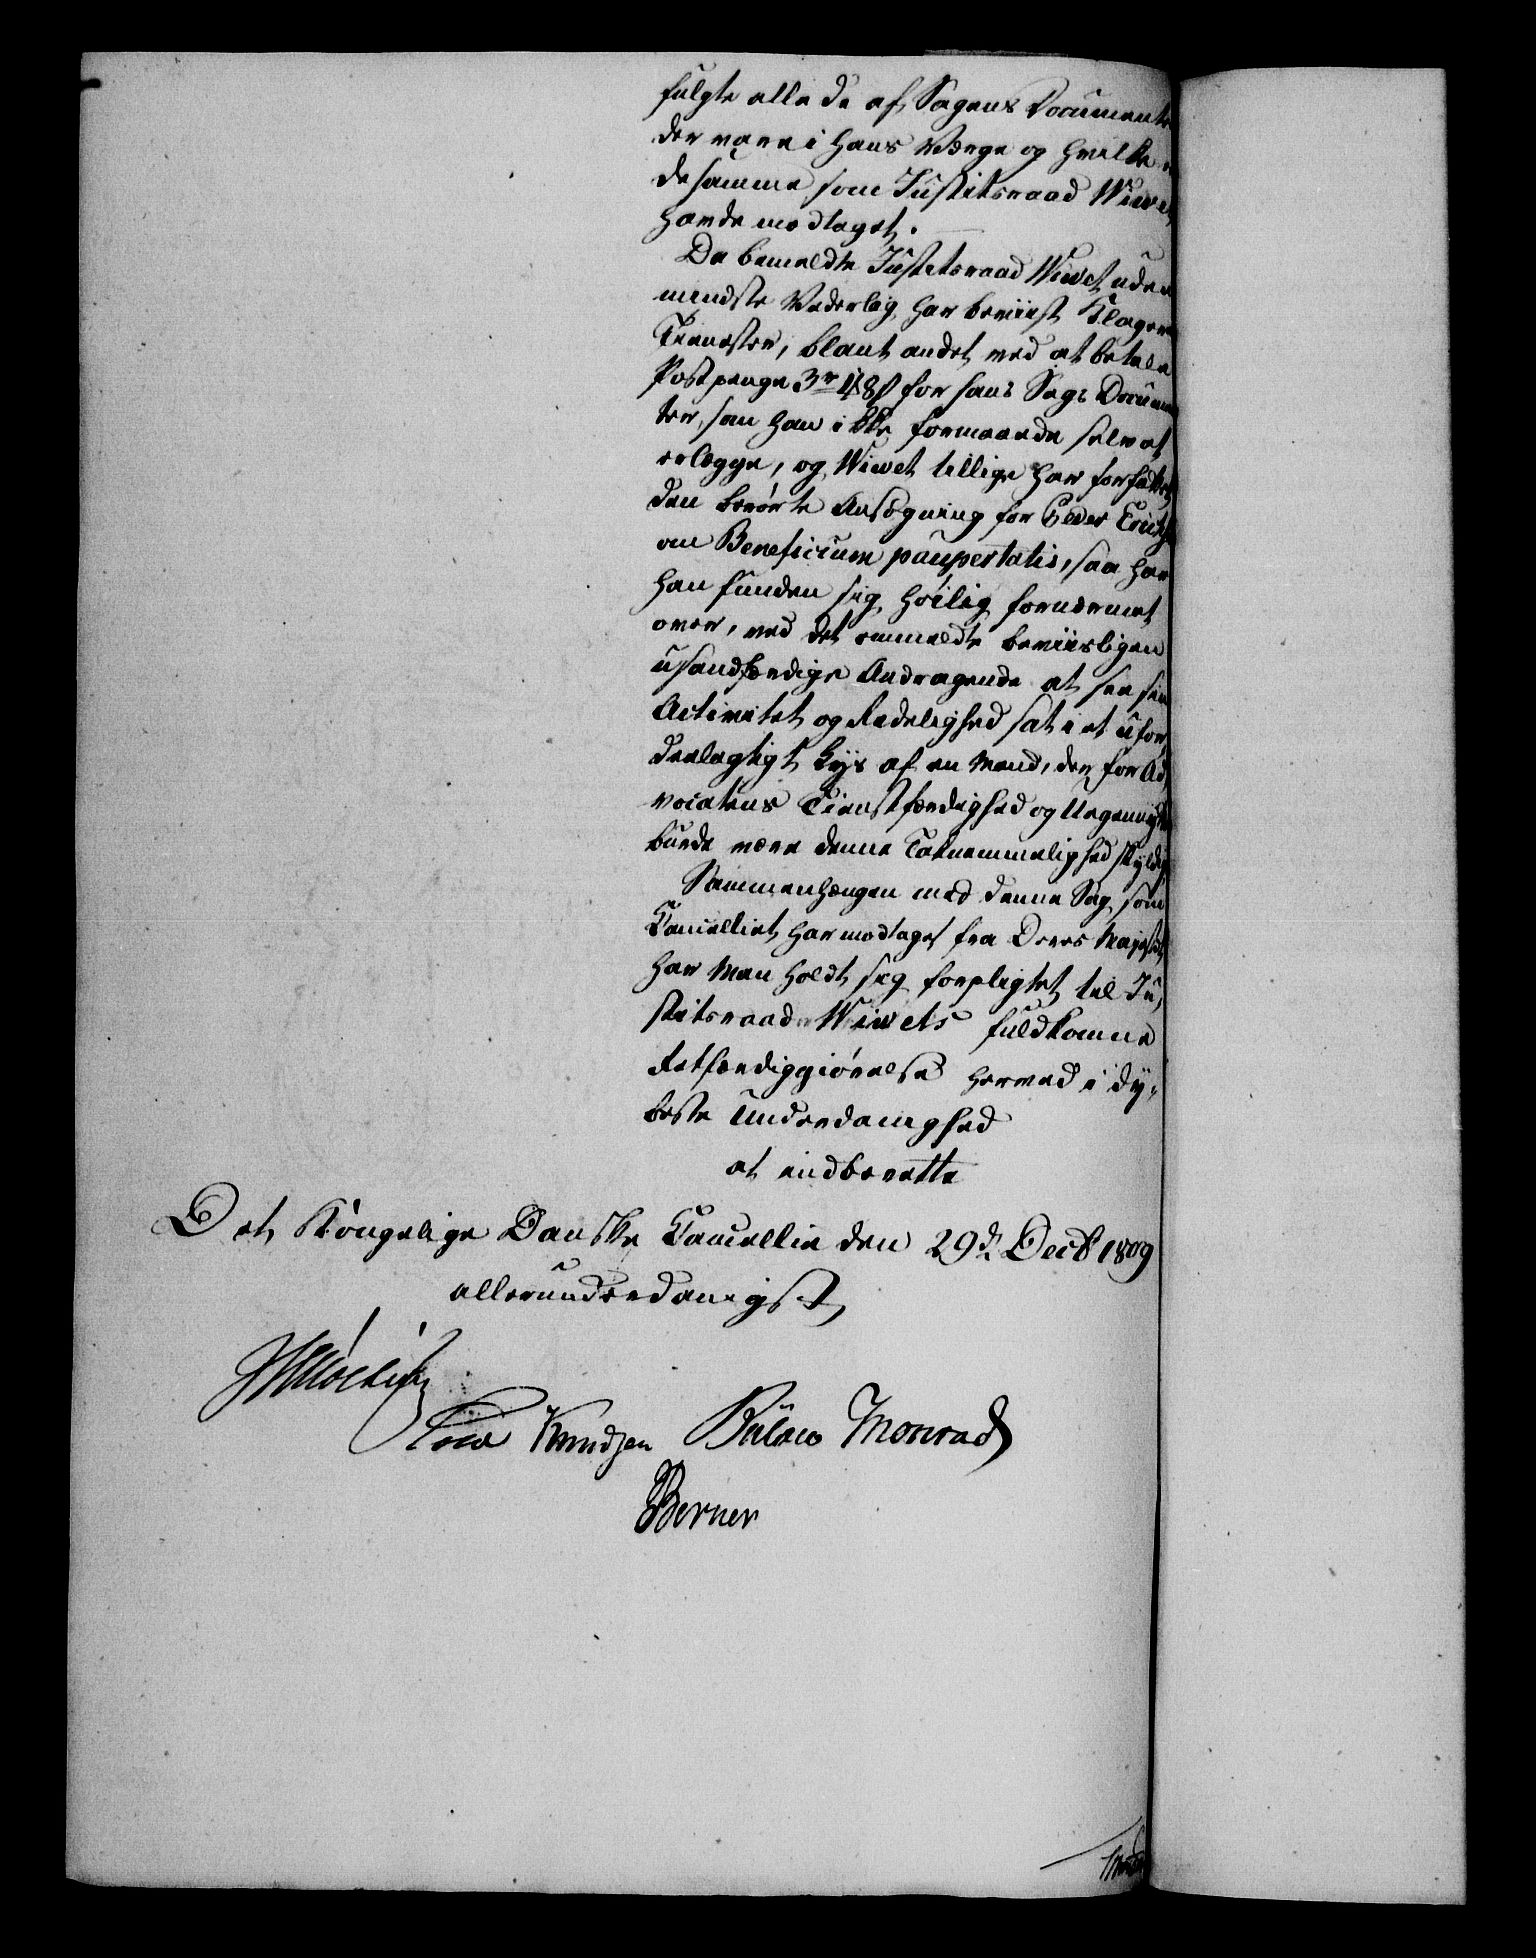 fulgte alle de af Sagens Documente
der vare i hans Værge og hvilke
desamme som Justitsraad Wiwet
havde modtaget.
Da bemeldte Justitsraad Wiwet uden
mindste Vederlag har beviist Klageren
Tienester, blant andet ved at betale
Postpenge 3 rd 48 s for hans Sags Documen
ter, som han ikke formaaede selv at
erlægge, og Wiwet tillige har forfattet
den berørte Ansøgning for Peder Erichs
om Beneficium paupertatis, saa har
han funden sig høilig fornærmet
over, ved det ommeldte beviisligen
usandfærdige Andragende at see sin
Activitet og Redelighed sat i et ufor
deelagtigt Lys af en Mand, der for Ad
vocatens Tienstfærdighed og Uegennytte
burde være denne Taknemmelighed skyldig
Sammenhængen med denne Sag, som
Cancelliet har modtaget fra Deres Majestæt
har Man holdt sig forpligtet til Ju,
stitsraad Wiwets fuldkomne
Retfærdiggiørelse herved i dy,
beste Underdanighed
at indberette
Det Kongelige Danske Cancellie den 29de Decb 1809
allerunderdanigst
Knudsen Bülow Monrad
Berner